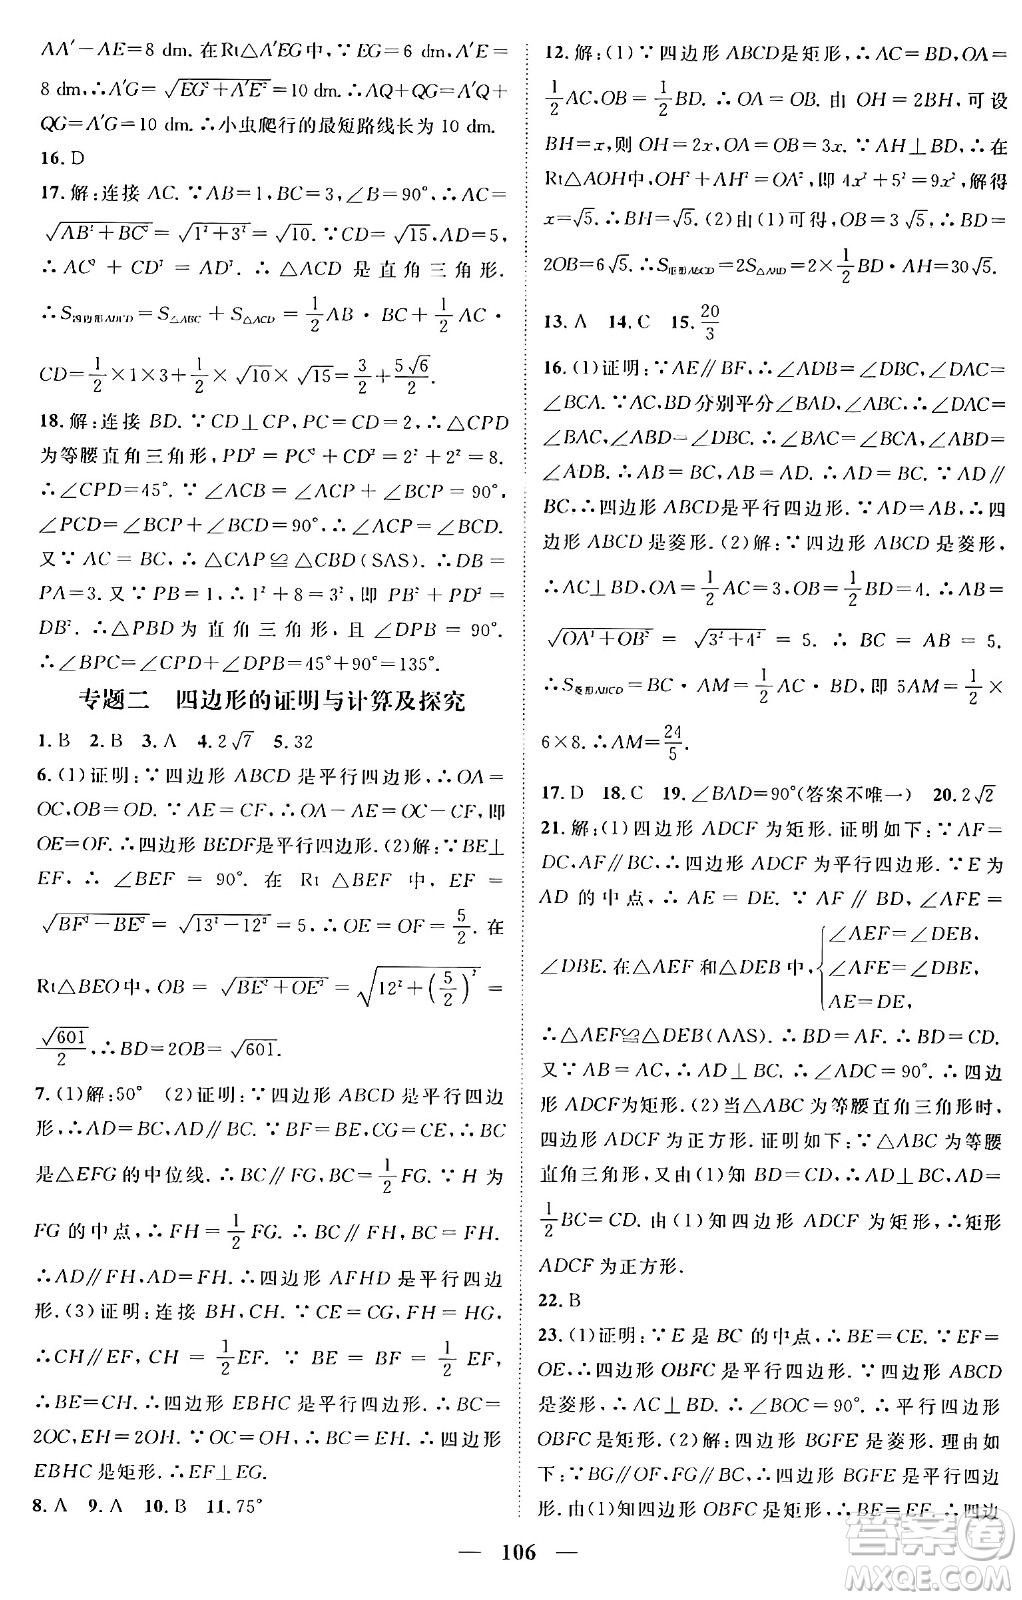 AA′－AE＝8 dm. 在Rt△A′EG中,∵EG＝6 dm,A′E＝
8 dm,∴A′G＝√(EG²＋A′E²)＝10 dm. ∴AQ＋QG＝A′Q＋
QG＝A′G＝10 dm. ∴小虫爬行的最短路线长为 10 dm.
16. D
17. 解:连接 AC. ∵AB＝1,BC＝3,∠B＝90°,∴AC＝
√(AB²＋BC²)＝√(1²＋3²)＝√10. ∵CD＝√15,AD＝5,
∴AC²＋CD²＝AD². ∴△ACD 是直角三角形.
∴S四边形ABCD＝S△ABC＋S△ACD＝1/2 AB·BC＋1/2 AC·
CD＝1/2×1×3＋1/2×√10×√15＝3/2＋5√6/2.
18. 解:连接 BD. ∵CD⊥CP,PC＝CD＝2,∴△CPD
为等腰直角三角形,PD²＝PC²＋CD²＝2²＋2²＝8.
∴∠CPD＝45°. ∵∠ACB＝∠ACP＋∠BCP＝90°,
∠PCD＝∠BCP＋∠BCD＝90°,∴∠ACP＝∠BCD.
又∵AC＝BC,∴△CAP≌△CBD(SAS). ∴DB＝
PA＝3. 又∵PB＝1,∴1²＋8＝3²,即 PB²＋PD²＝
DB². ∴△PBD 为直角三角形,且∠DPB＝90°.
∴∠BPC＝∠CPD＋∠DPB＝45°＋90°＝135°.
专题二 四边形的证明与计算及探究
1. B 2. B 3. A 4. 2√7 5. 32
6. (1)证明:∵四边形 ABCD 是平行四边形,∴OA＝
OC,OB＝OD. ∵AE＝CF,∴OA－AE＝OC－CF,即
OE＝OF. ∴四边形 BEDF是平行四边形. (2)解:∵BE⊥
EF,∴∠BEF＝90°. 在 Rt△BEF 中,EF＝
√(BF²－BE²)＝√(13²－12²)＝5,∴OE＝OF＝5/2. 在
Rt△BEO中,OB＝√(BE²＋OE²)＝√(12²＋(5/2)²)＝
√601/2,∴BD＝2OB＝√601.
7. (1)解:50° (2)证明:∵四边形 ABCD 是平行四边
形,∴AD＝BC,AD∥BC. ∵BF＝BE,CG＝CE,∴BC
是△EFG 的中位线. ∴BC∥FG,BC＝1/2 FG. ∵H 为
FG 的中点,∴FH＝1/2 FG. ∴BC∥FH,BC＝FH.
∴AD∥FH,AD＝FH. ∴四边形 AFHD 是平行四边
形. (3)证明:连接 BH,CH. ∵CE＝CG,FH＝HG,
∴CH∥EF,CH＝1/2 EF. ∵BE＝BF＝1/2 EF,
∴BE＝CH. ∴四边形 EBHC 是平行四边形. ∴BC＝
2OC,EH＝2OH. ∵OC＝OH,∴BC＝EH. ∴四边形
EBHC 是矩形. ∴EF⊥EG.
8. A 9. A 10. B 11. 75°
12. 解:(1)∵四边形 ABCD是矩形,∴AC＝BD,OA＝
1/2 AC,OB＝1/2 BD. ∴OA＝OB. 由 OH＝2BH,可设
BH＝x,则 OH＝2x,OA＝OB＝3x. ∵AH⊥BD,∴在
Rt△AOH中,OH²＋AH²＝OA²,即 4x²＋5²＝9x²,解得
x＝√5. ∴BH＝√5. (2)由(1)可得,OB＝3√5,BD＝
2OB＝6√5. ∴S矩形ABCD＝2S△ABD＝2×1/2 BD·AH＝30√5.
13. A 14. C 15. 20/3
16. (1)证明:∵AE∥BF,∴∠ADB＝∠DBC,∠DAC＝
∠BCA. ∵AC,BD 分别平分∠BAD,∠ABC,∴∠DAC＝
∠BAC,∠ABD＝∠DBC. ∴∠BAC＝∠BCA,∠ABD＝
∠ADB. ∴AB＝BC,AB＝AD. ∴AD＝BC. ∵AD∥
BC,∴四边形 ABCD是平行四边形. ∵AD＝AB,∴四
边形 ABCD 是菱形. (2)解:∵四边形 ABCD 是菱形,
∴AC⊥BD,OA＝1/2 AC＝3,OB＝1/2 BD＝4. ∴AB＝
√(OA²＋OB²)＝√(3²＋4²)＝5. ∴BC＝AB＝5.
∴S菱形ABCD＝BC·AM＝1/2 AC·BD,即 5AM＝1/2×
6×8. ∴AM＝24/5.
17. D 18. C 19. ∠BAD＝90°(答案不唯一) 20. 2√2
21. 解:(1)四边形 ADCF 为矩形. 证明如下:∵AF＝
DC,AF∥BC,∴四边形 ADCF 为平行四边形. ∵E为
AD 的中点,∴AE＝DE. ∵AF∥BC,∴∠AFE＝
∠DBE. 在△AEF 和△DEB 中,{∠AEF＝∠DEB, ∠AFE＝∠DBE, AE＝DE,
∴△AEF≌△DEB(AAS). ∴BD＝AF. ∴BD＝CD.
又∵AB＝AC,∴AD⊥BC. ∴∠ADC＝90°. ∴四边
形 ADCF为矩形. (2)当△ABC 为等腰直角三角形时,
四边形 ADCF 为正方形. 证明如下:∵△ABC 为等腰
直角三角形,又由(1)知 BD＝CD,∴AD⊥BC,AD＝
1/2 BC＝CD. 由(1)知四边形 ADCF 为矩形,∴矩形
ADCF 为正方形.
22. B
23. (1)证明:∵E 是 BC 的中点,∴BE＝CE. ∵EF＝
OE,∴四边形 OBFC 是平行四边形. ∵四边形 ABCD
是菱形,∴AC⊥BD. ∴∠BOC＝90°. ∴平行四边形
OBFC 是矩形. (2)解:四边形 BGFE 是菱形. 理由如
下:∵BG∥OF,FG∥BC,∴四边形 BGFE 是平行四边
形. 由(1)知四边形 OBFC 是矩形,∴BE＝EF. ∴四边
— 106 —
答案圈
MXQE.COM